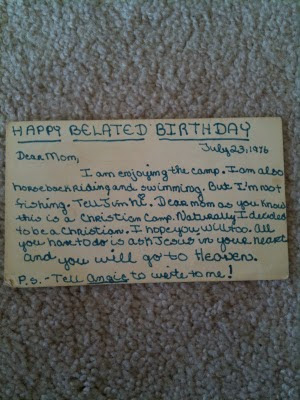 HAPPY BELATED BIRTHDAY
July 23, 1976
Dear Mom,
I am enjoying the camp. I am also
horseback riding and swimming. But I'm not
fishing. Tell Jim hi. Dear mom as you know
this is a Christian Camp. Naturally I decided
to be a Christian. I hope you will too. All
you have to do is ask Jesus in your heart
and you will go to Heaven.
P.S. - Tell Angie to write to me!